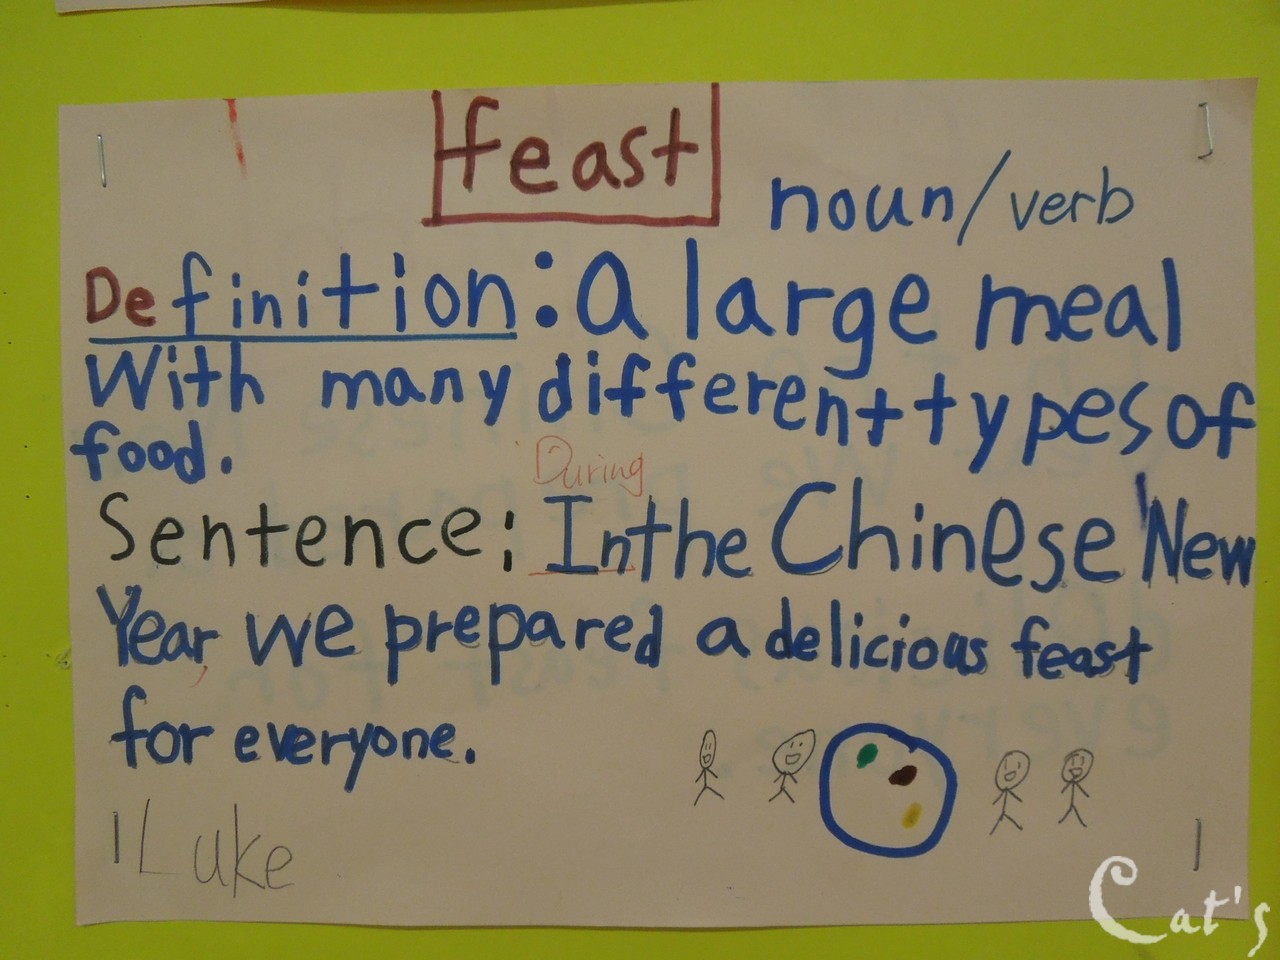 feast
noun/verb
Definition: a large meal
With many different types of
food.
During
Sentence: In the Chinese New
Year, we prepared a delicious feast
for everyone.
Luke
Cat's